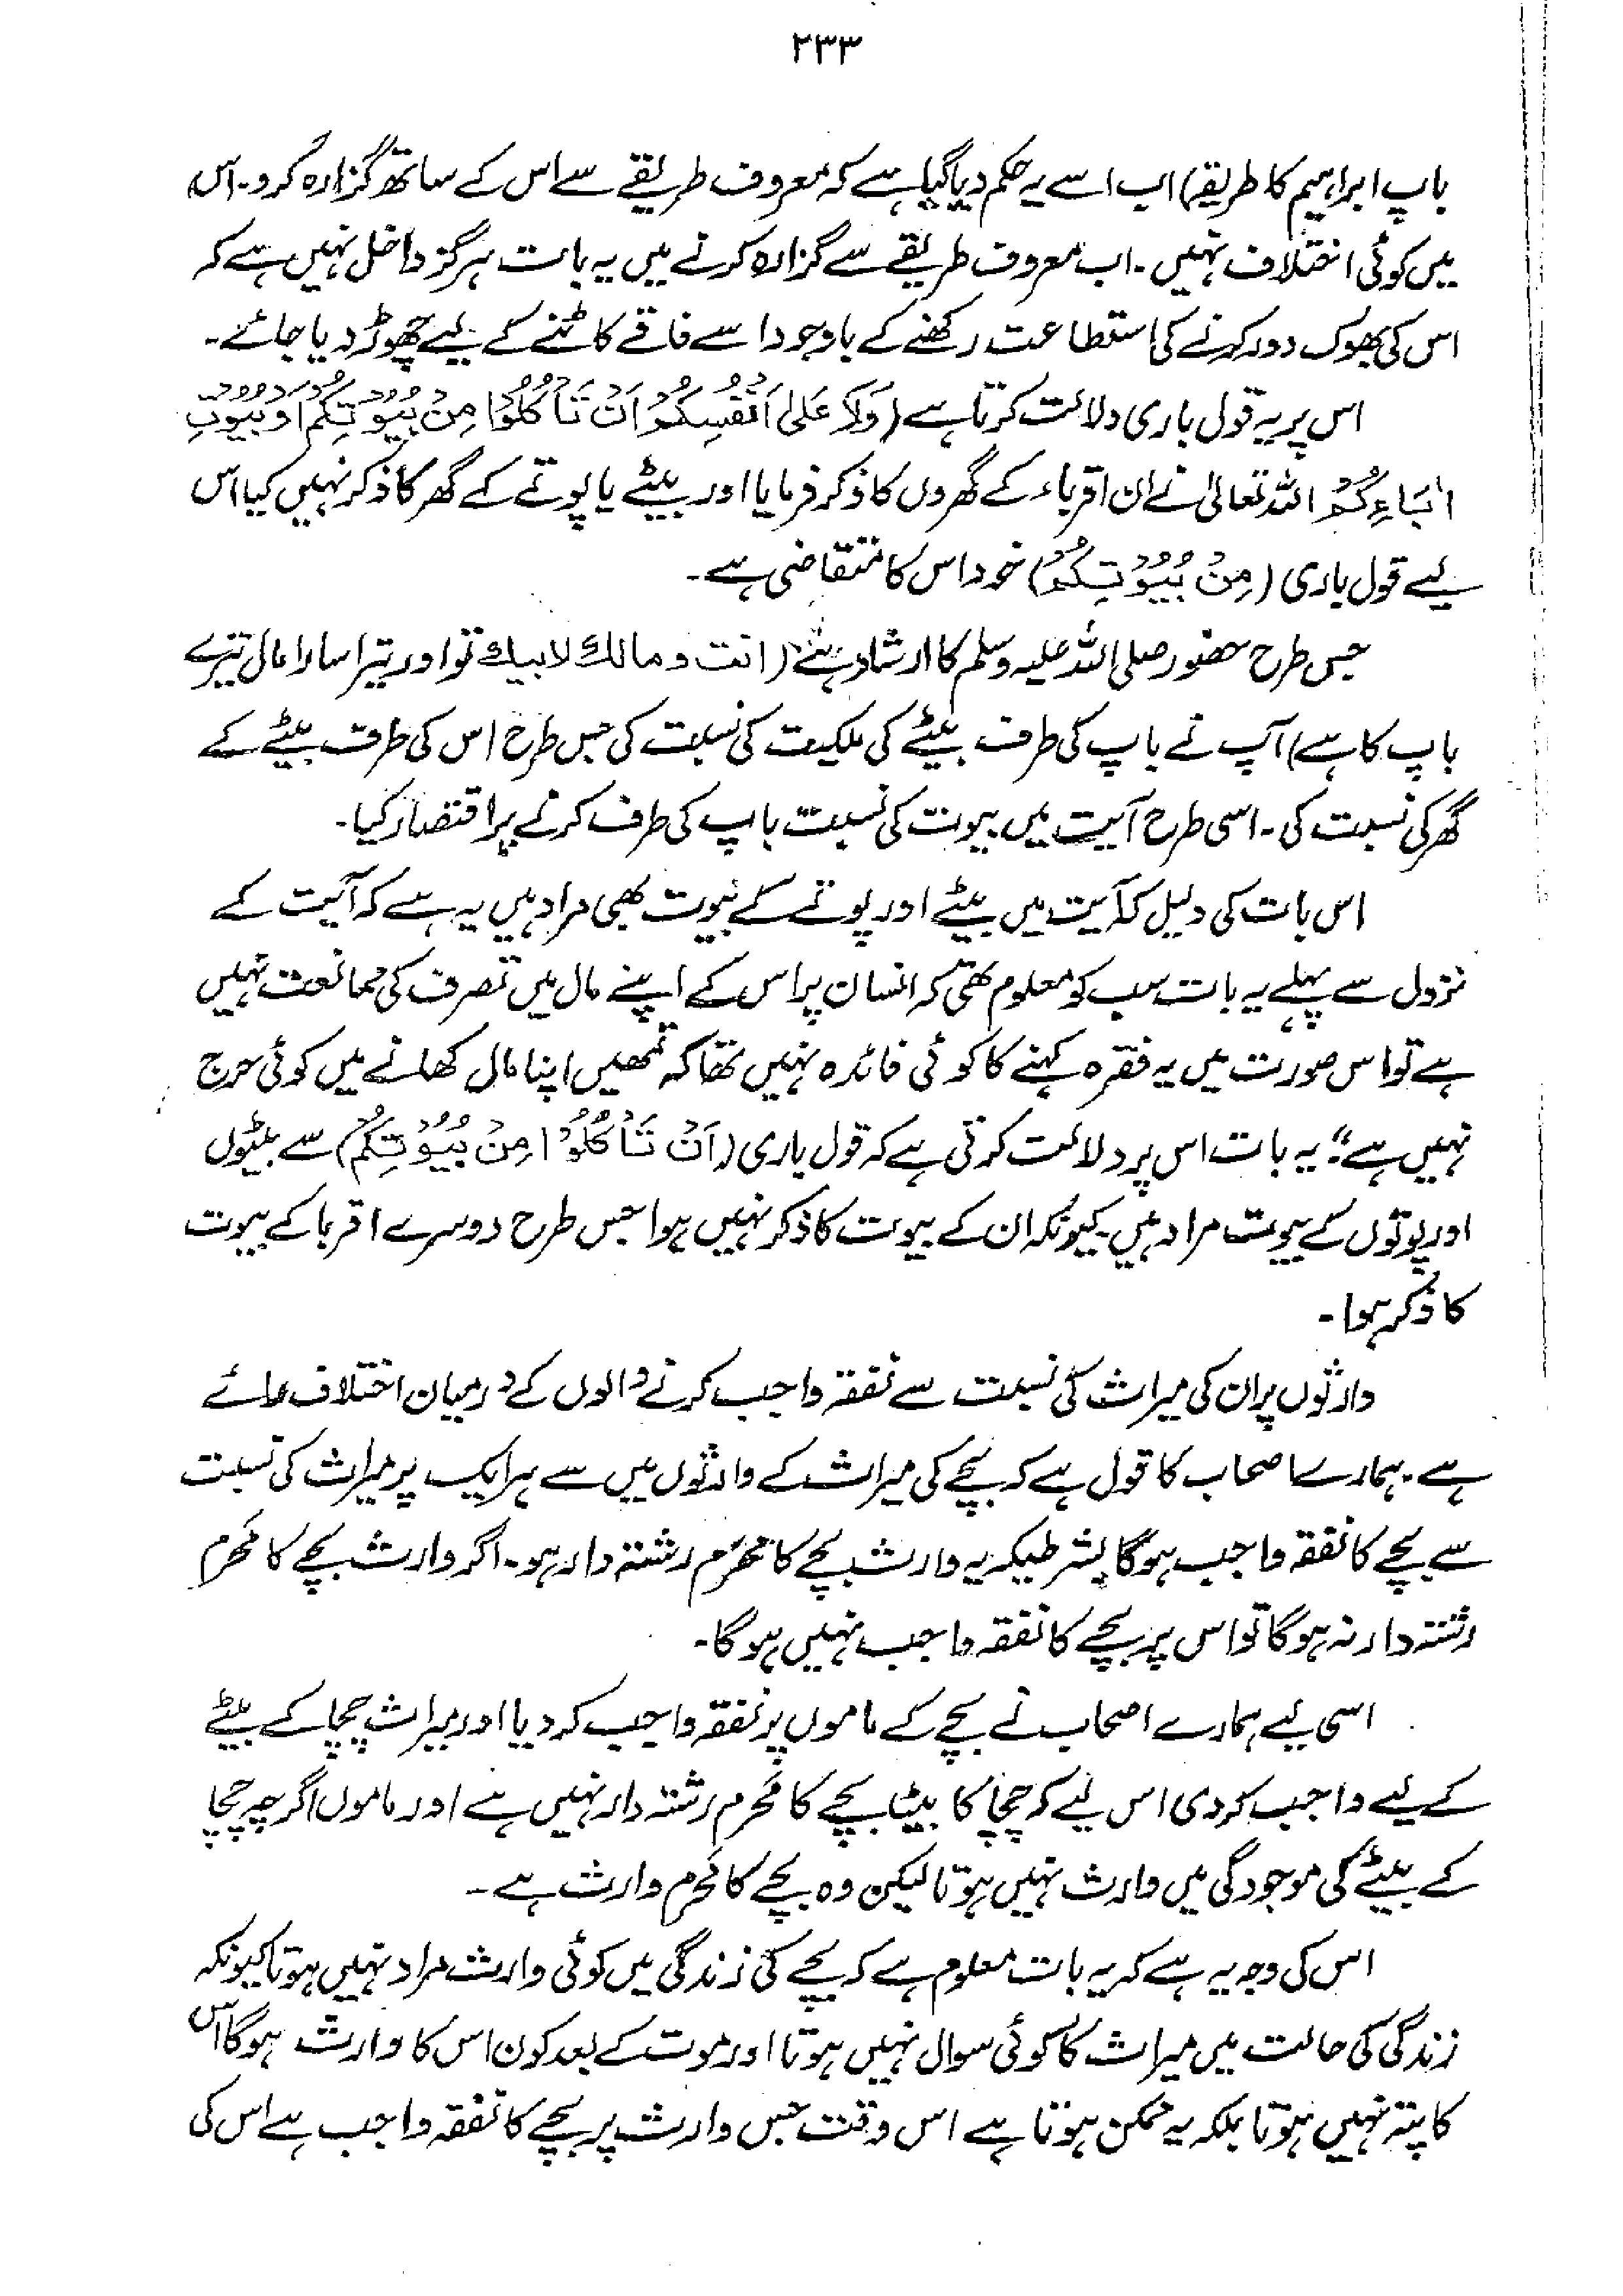 ۲۳۳
باپ ابراہیم کا طریقہ) اب اسے یہ حکم دیا گیا ہے کہ معروف طریقے سے اس کے ساتھ گزارہ کرو۔ اس
میں کوئی اختلاف نہیں۔ اب معروف طریقے سے گزارہ کرنے میں یہ بات ہرگز داخل نہیں ہے کہ
اس کی بھوک دور کرنے کی استطاعت رکھنے کے باوجود اسے فاقے کاٹنے کے لیے چھوڑ دیا جائے۔
اس پر یہ قول باری دلالت کرتا ہے (وَلَا عَلیٰ اَنْفُسِکُمْ اَنْ تَأْکُلُوْا مِنْ بُیُوْتِکُمْ اَوْ بُیُوْتِ
اٰبَاءِکُمْ اللہ تعالیٰ نے ان اقرباء کے گھروں کا ذکر فرمایا اور بیٹے یا پوتے کے گھر کا ذکر نہیں کیا اس
لیے قول باری (مِنْ بُیُوْتِکُمْ) خود اس کا متقاضی ہے۔
جس طرح حضور صلی اللہ علیہ وسلم کا ارشاد ہے (انت ومالك لابيك تو اور تیرا سارا مال تیرے
باپ کا ہے) آپ نے باپ کی طرف بیٹے کی ملکیت کی نسبت کی جس طرح اس کی طرف بیٹے کے
گھر کی نسبت کی۔ اسی طرح آیت میں بیوت کی نسبت باپ کی طرف کرنے پر اقتصار کیا۔
اس بات کی دلیل کہ آیت میں بیٹے اور پوتے کے بیوت بھی مراد ہیں یہ ہے کہ آیت کے
نزول سے پہلے یہ بات سب کو معلوم تھی کہ انسان پر اس کے اپنے مال میں تصرف کی ممانعت نہیں
ہے تو اس صورت میں یہ فقرہ کہنے کا کوئی فائدہ نہیں تھا کہ تمھیں اپنا مال کھانے میں کوئی حرج
نہیں ہے"؛ یہ بات اس پر دلالت کرتی ہے کہ قول باری (اَنْ تَأْکُلُوْا مِنْ بُیُوْتِکُمْ) سے بیٹوں
اور پوتوں کے بیوت مراد ہیں۔ کیونکہ ان کے بیوت کا ذکر نہیں ہوا جس طرح دوسرے اقربا کے بیوت
کا ذکر ہوا۔
وارثوں پر ان کی میراث کی نسبت سے نفقہ واجب کرنے والوں کے درمیان اختلاف رائے
ہے۔ ہمارے اصحاب کا قول ہے کہ بچے کی میراث کے وارثوں میں سے ہر ایک پر میراث کی نسبت
سے بچے کا نفقہ واجب ہوگا بشرطیکہ یہ وارث بچے کا محرَم رشتہ دار ہو۔ اگر وارث بچے کا مَحرم
رشتہ دار نہ ہوگا تو اس پر بچے کا نفقہ واجب نہیں ہوگا۔
اسی لیے ہمارے اصحاب نے بچے کے ماموں پر نفقہ واجب کر دیا اور میراث چچا کے بیٹے
کے لیے واجب کر دی اس لیے کہ چچا کا بیٹا بچے کا مَحرم رشتہ دار نہیں ہے اور ماموں اگرچہ چچا
کے بیٹے کی موجودگی میں وارث نہیں ہوتا لیکن وہ بچے کا مَحرم وارث ہے۔
اس کی وجہ یہ ہے کہ یہ بات معلوم ہے کہ بچے کی زندگی میں کوئی وارث مراد نہیں ہوتا کیونکہ
زندگی کی حالت میں میراث کا کوئی سوال نہیں ہوتا اور موت کے بعد کون اس کا وارث ہوگا اس
کا پتہ نہیں ہوتا بلکہ یہ ممکن ہوتا ہے اس وقت جس وارث پر بچے کا نفقہ واجب ہے اس کی